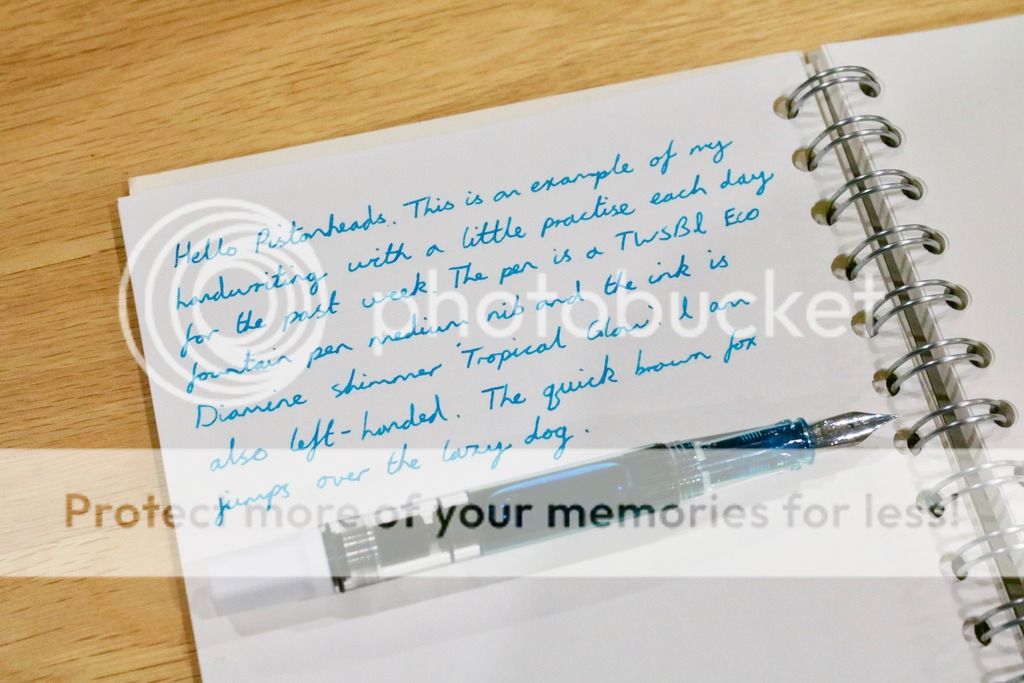 Hello Pistonheads. This is an example of my
handwriting with a little practise each day
for the past week. The pen is a TWSBI Eco
fountain pen medium nib and the ink is
Diamine shimmer 'Tropical Glow'. I am
also left-handed. The quick brown fox
jumps over the lazy dog.
photobucket
Protect more of your memories for less!